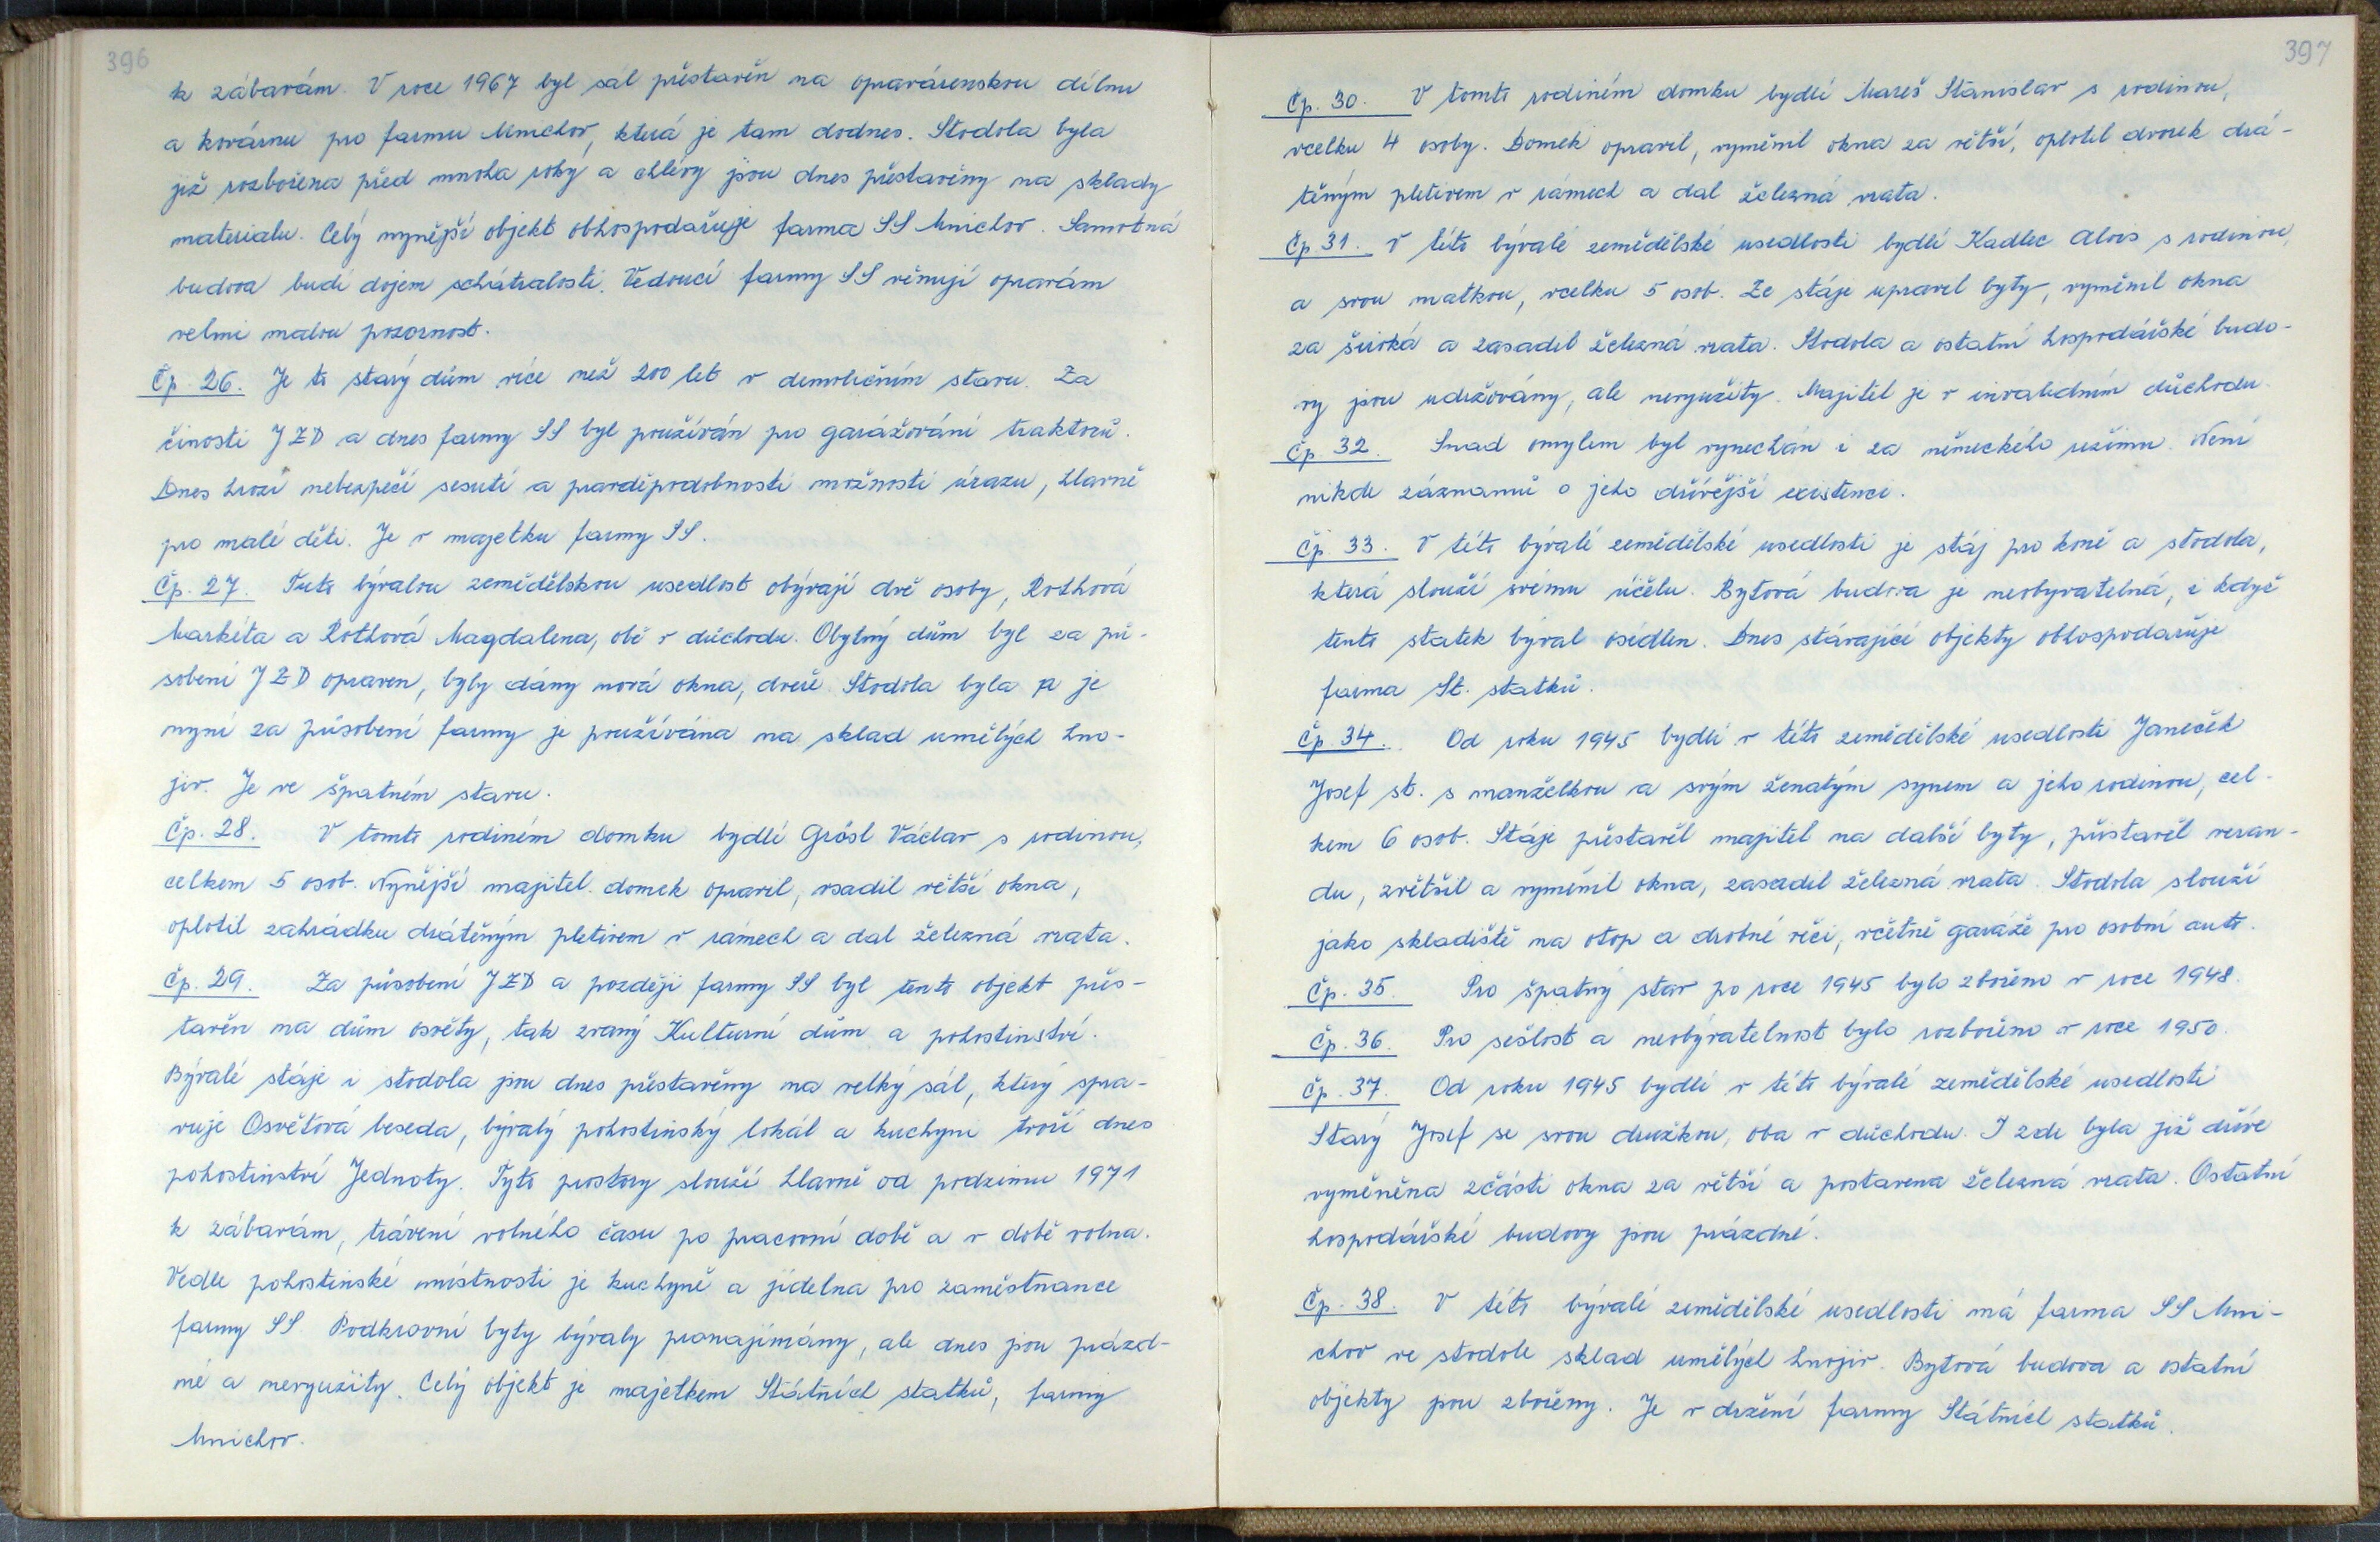 396
k zábavám. V roce 1967 byl sál přestavěn na opravárenskou dílnu
a kovárnu pro farmu Mnichov, která je tam dodnes. Stodola byla
již rozbořena před mnoha roky a chlévy jsou dnes přestavěny na sklady
materialu. Celý nynější objekt obhospodařuje farma SS Mnichov. Samotná
budova budí dojem schátralosti. Vedoucí farmy SS věnují opravám
velmi malou pozornost.
Čp. 26. Je to starý dům více než 200 let v demoličním stavu. Za
činosti JZD a dnes farmy SS byl používán pro garážování traktorů.
Dnes hrozí nebezpečí sesutí a pravděpodobnosti možnosti úrazu, hlavně
pro malé děti. Je v majetku farmy SS.
Čp. 27. Tuto bývalou zemědělskou usedlost obývají dvě osoby, Rothová
Markéta a Rothová Magdalena, obě v důchodu. Obytný dům byl za pů-
sobení JZD opraven, byly dány nová okna, dveře. Stodola byla a je
nyní za působení farmy je používána na sklad umělých hno-
jiv. Je ve špatném stavu.
Čp. 28. V tomto rodiném domku bydlí Grösl Václav s rodinou,
celkem 5 osob. Nynější majitel domek opravil, vsadil větší okna,
oplotil zahrádku drátěným pletivem v rámech a dal železná vrata.
Čp. 29. Za působení JZD a později farmy SS byl tento objekt přes-
tavěn na dům osvěty, tak zvaný Kulturní dům a pohostinství.
Bývalé stáje i stodola jsou dnes přestavěny na velký sál, který spra-
vuje Osvětová beseda, bývalý pohostinský lokál a kuchyni tvoří dnes
pohostinství Jednoty. Tyto prostory slouží hlavně od podzimu 1971
k zábavám, trávení volného času po pracovní době a v době volna.
Vedle pohostinské místnosti je kuchyně a jídelna pro zaměstnance
farmy SS. Podkrovní byty bývaly pronajímány, ale dnes jsou prázd-
né a nevyužity. Celý objekt je majetkem Státních statků, farmy
Mnichov.
397
Čp. 30. V tomto rodiném domku bydlí Mareš Stanislav s rodinou,
vcelku 4 osoby. Domek opravil, vyměnil okna za větší, oplotil dvorek drá-
těným pletivem v rámech a dal železná vrata.
Čp 31. V této bývalé zemědělské usedlosti bydlí Kadlec Alois s rodinou,
a svou matkou, vcelku 5 osob. Ze stáje upravil byty, vyměnil okna
za široká a zasadil železná vrata. Stodola a ostatní hospodářské budo-
vy jsou udržovány, ale nevyužity. Majitel je v invalidním důchodu.
Čp. 32. Snad omylem byl vynechán i za německého režimu. Není
nikde záznamů o jeho dřívější existenci.
Čp. 33. V této bývalé zemědělské usedlosti je stáj pro koně a stodola,
která slouží svému účelu. Bytová budova je neobyvatelná, i když
tento statek býval osídlen. Dnes stávající objekty obhospodařuje
farma St. statků.
Čp. 34. Od roku 1945 bydlí v této zemědělské usedlosti Janeček
Josef st. s manželkou a svým ženatým synem a jeho rodinou, cel-
kem 6 osob. Stáje přestavěl majitel na další byty, přistavěl veran-
du, zvětšil a vyměnil okna, zasadil železná vrata. Stodola slouží
jako skladiště na otop a drobné věci, včetně garáže pro osobní auto.
Čp. 35. Pro špatný stav po roce 1945 bylo zbořeno v roce 1948.
Čp. 36. Pro sešlost a neobývatelnost bylo rozbořeno v roce 1950.
Čp. 37. Od roku 1945 bydlí v této bývalé zemědělské usedlosti
Starý Josef se svou družkou, oba v důchodu. I zde byla již dříve
vyměněna zčásti okna za větší a postavena železná vrata. Ostatní
hospodářské budovy jsou prázdné.
Čp. 38. V této bývalé zemědělské usedlosti má farma SS Mni-
chov ve stodole sklad umělých hnojiv. Bytová budova a ostatní
objekty jsou zbořeny. Je v držení farmy Státních statků.